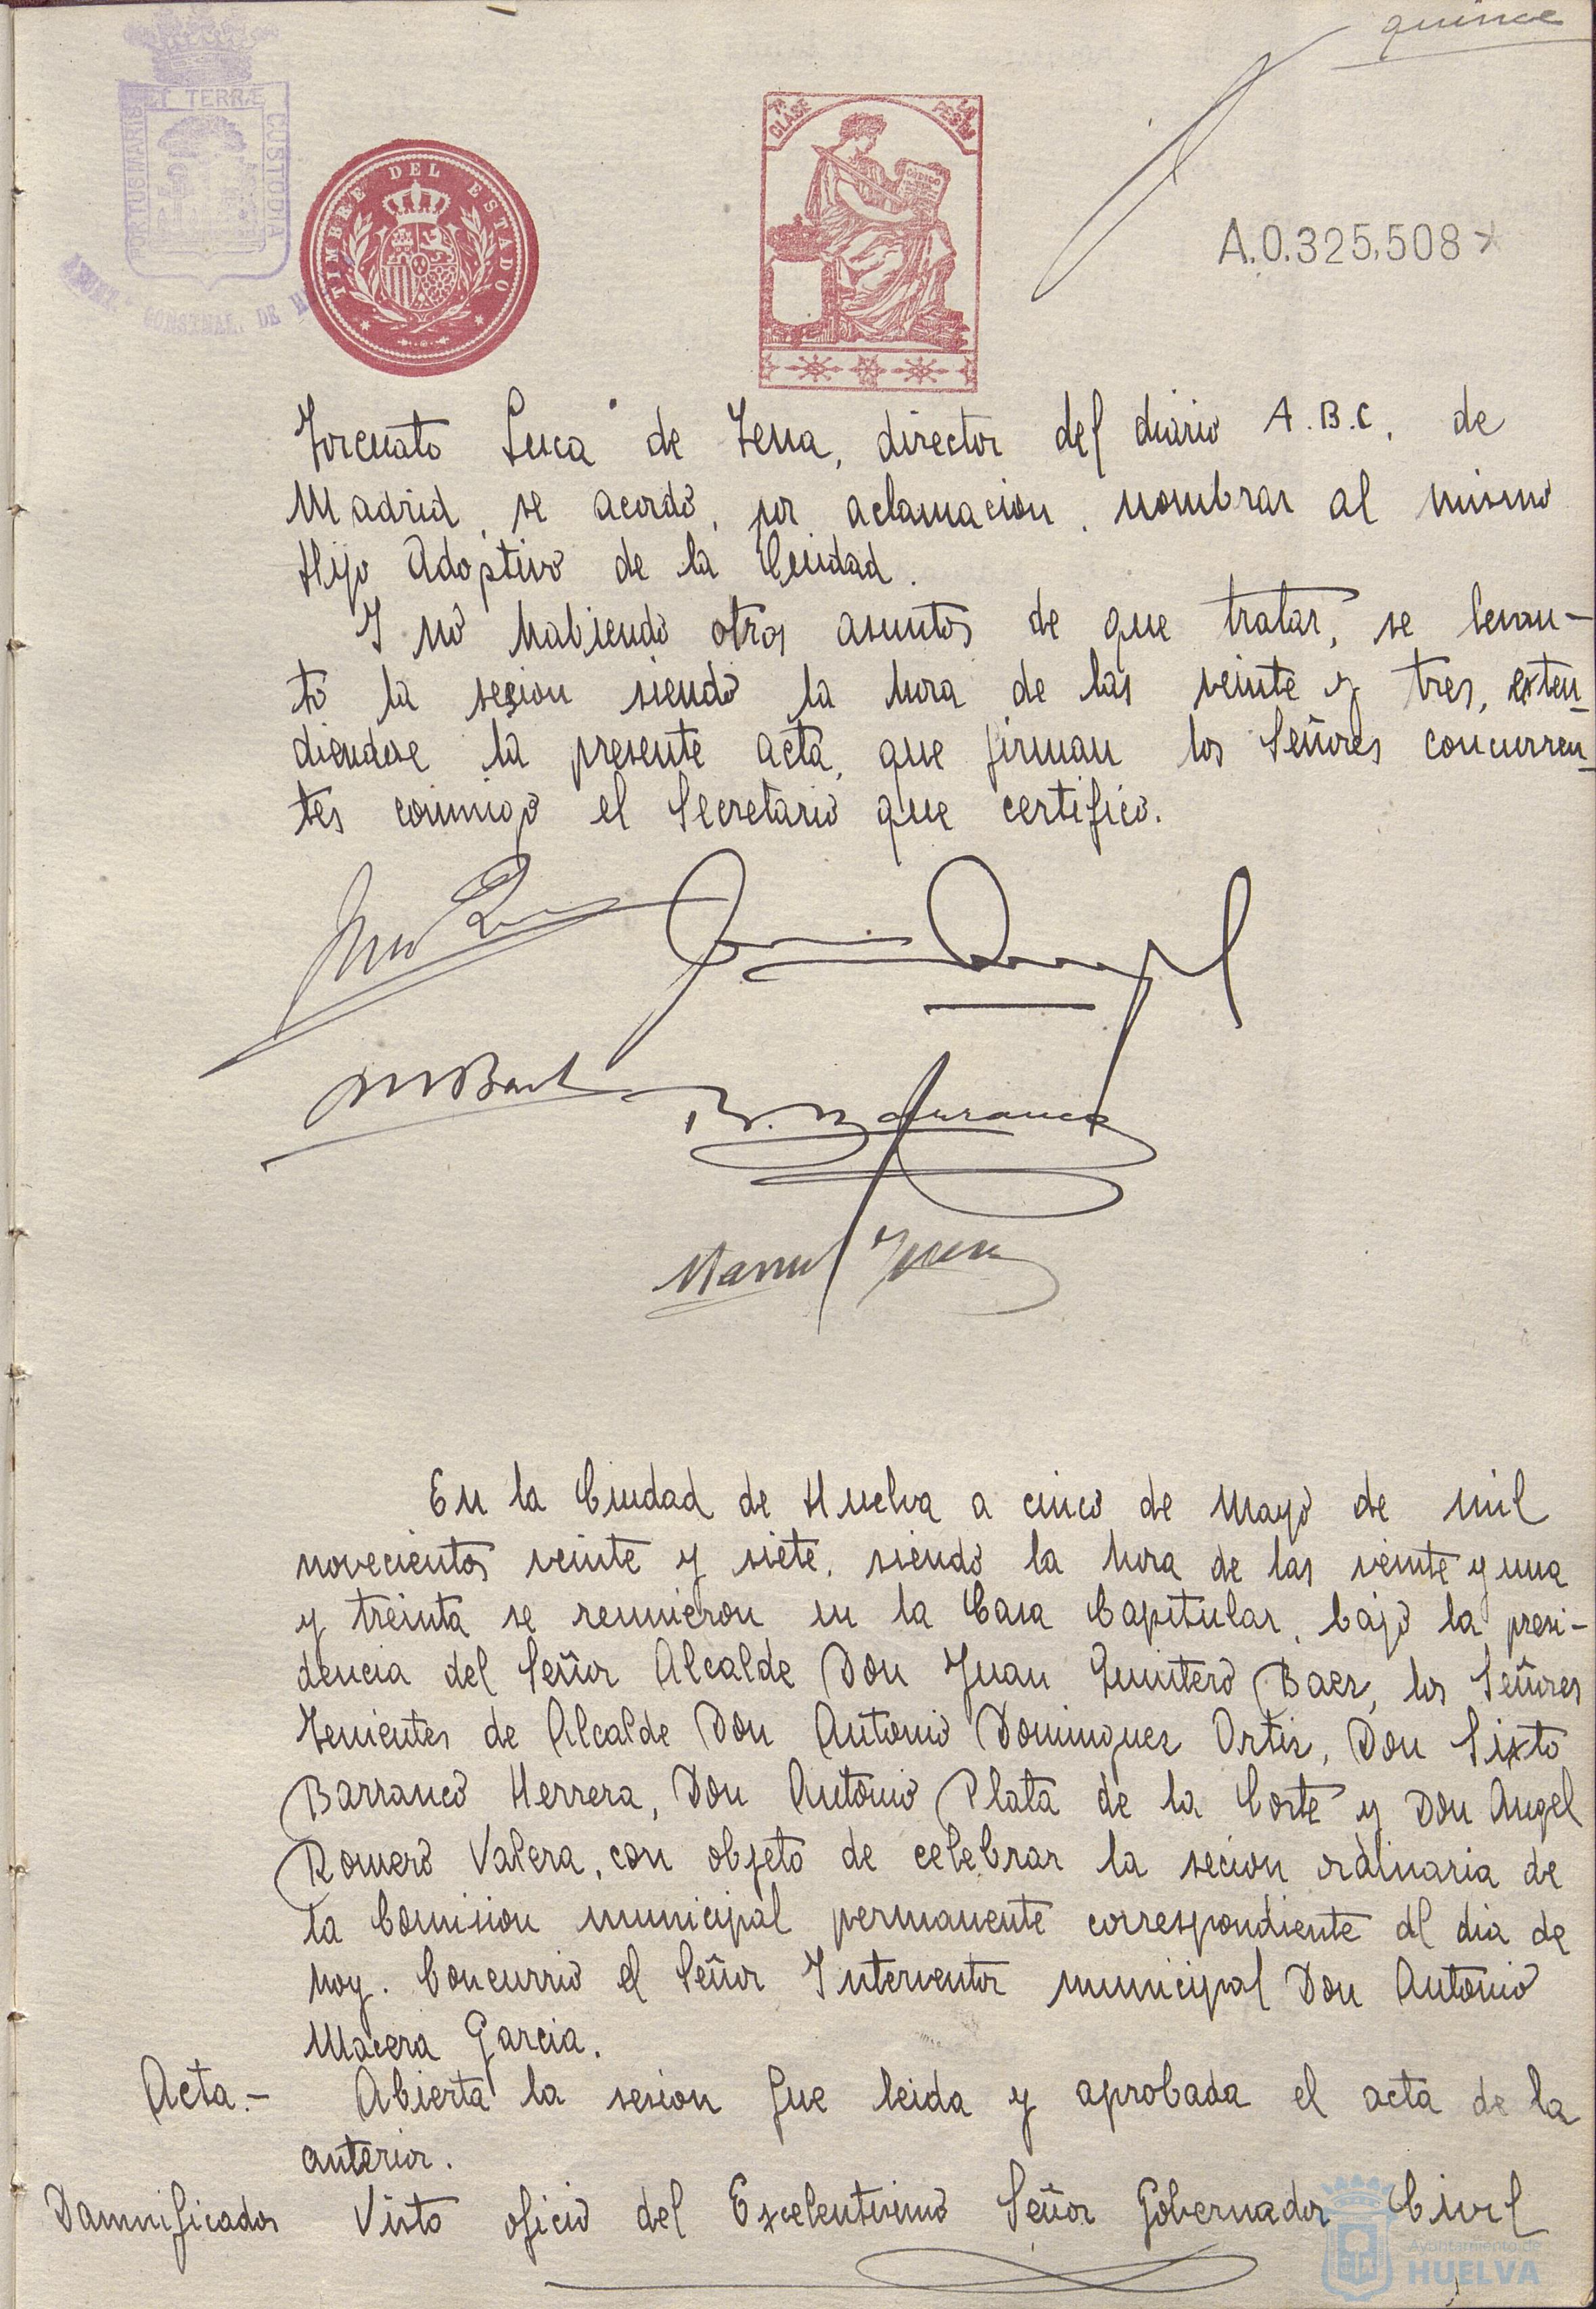 quince
ET TERRÆ
PORTUS MARIS
CUSTODIA
TIMBRE DEL ESTADO
7ª CLASE
A.0.325,508*
Torcuato Luca de Tena, director del diario A.B.C. de
Madrid, se acordó, por aclamacion, nombrar al mismo
Hijo Adoptivo de la Ciudad.
Y no habiendo otros asuntos de que tratar, se levan-
tó la sesion siendo la hora de las veinte y tres, exten-
diendose la presente acta, que firman los Señores concurren-
tes conmigo el Secretario que certifico.
En la Ciudad de Huelva a cinco de Mayo de mil
novecientos veinte y siete, siendo la hora de las veinte y una
y treinta se reunieron en la Casa Capitular, bajo la presi-
dencia del Señor Alcalde Don Juan Quintero Baez, los Señores
Tenientes de Alcalde Don Antonio Dominguez Ortiz, Don Sixto
Barranco Herrera, Don Antonio Plata de la Corte y Don Angel
Romero Valera, con objeto de celebrar la secion ordinaria de
la Comision municipal permanente correspondiente al dia de
hoy. Concurrió el Señor Interventor municipal Don Antonio
Macera Garcia.
Acta.- Abierta la sesion fue leida y aprobada el acta de la
anterior.
Damnificados Visto oficio del Excelentisimo Señor Gobernador Civil
Ayuntamiento de
HUELVA